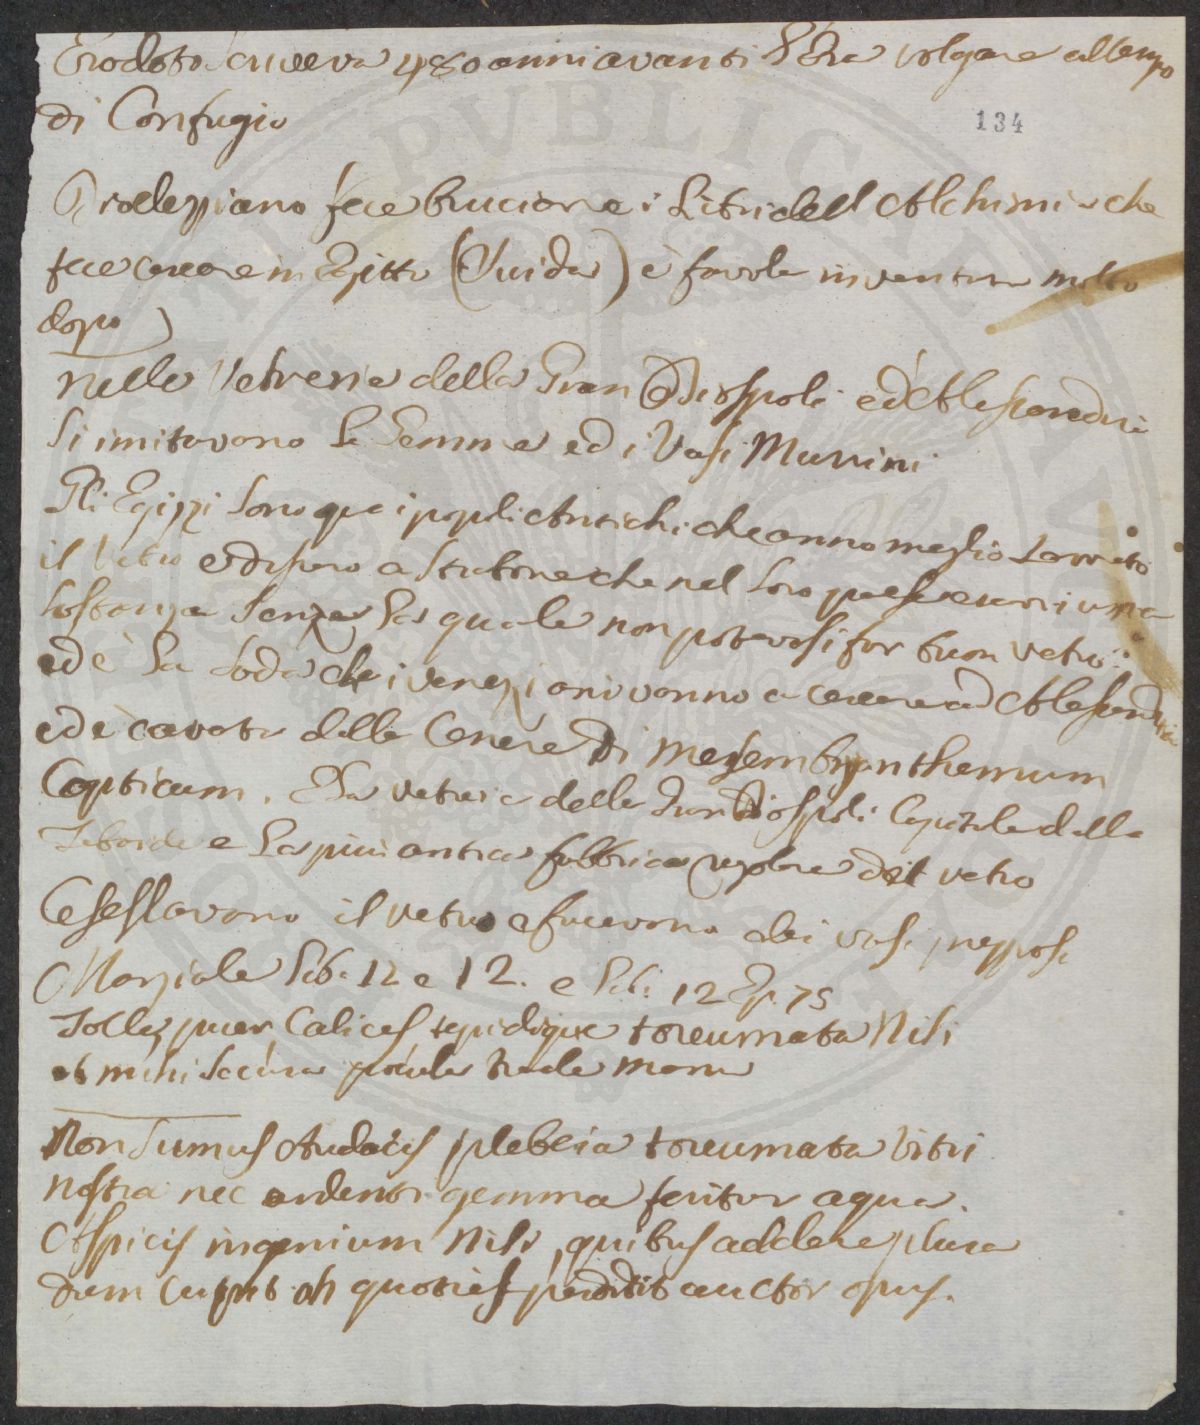 Erodoto scriveva 480 anni avanti l'Era volgare al tempo
134
di Confugio
Diocleziano fece bruciare i Libri dell'Alchimia che
fece cercare in Egitto (Suida) è favola inventata molto
dopo
nelle Vetrerie della Gran Diospoli ed Alessandria
si imitavano le Gemme ed i Vasi Murrini
Gli Egizzi sono que i popoli Antichi che anno meglio Lavorato
il Vetro e dissero a Strabone che nel loro paese eravi una
sostanza senza la quale non potevasi far buon vetro:
ed è la Soda che i veneziani vanno a cercare ad Alessandria
ed è cavata dalle Cenere di Mesembryanthemum
Copticum. E la vetreria della Gran Diospoli Capitale della
Tebaide e la piu antica fabbrica regolare del vetro
Cesellavano il vetro e facevono dei vasi preziosi
Marziale Lib. 12 e 12. e Lib. 12 Ep. 75
Tolle puer Calices tepidique toreumata Nili
et mihi secura pocula trade manu
Non sumus Audacis plebeia toreumata Vitri
nostra nec ardenti gemma feritur aqua.
Aspicis ingenium Nili, quibus addere plura
dum cupit ah quoties perdidit auctor opus.